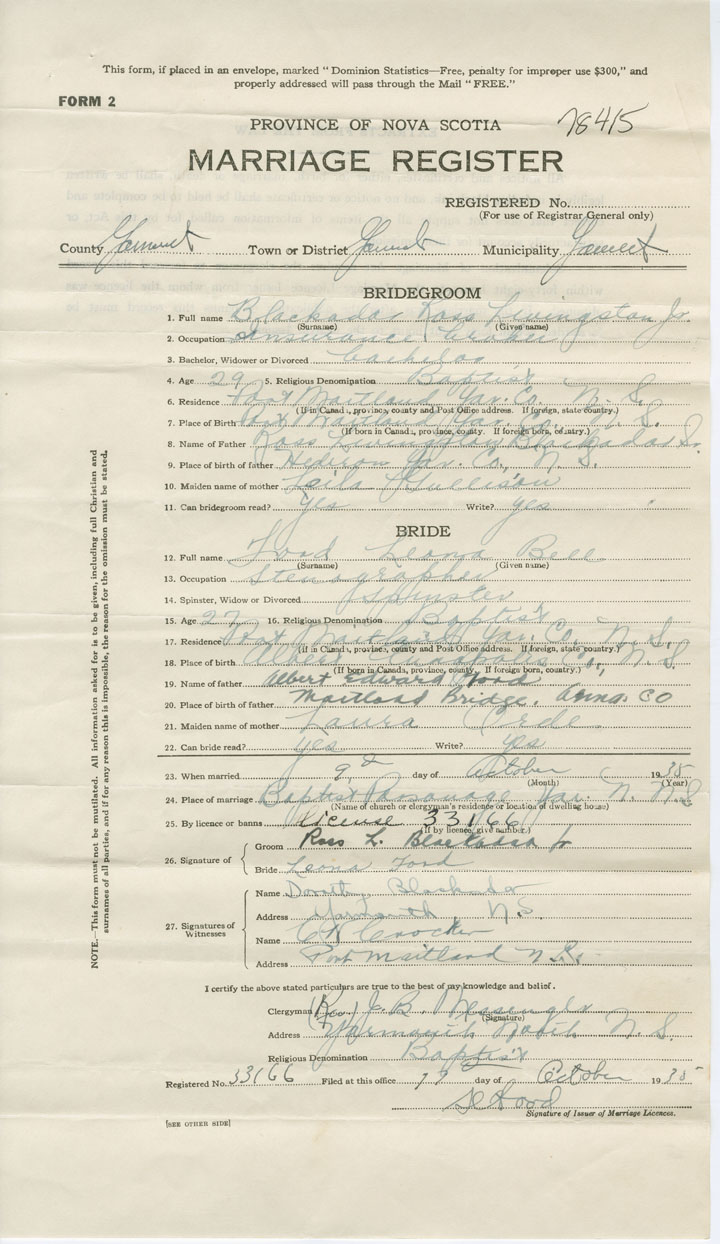 This form, if placed in an envelope, marked "Dominion Statistics—Free, penalty for improper use $300," and
properly addressed will pass through the Mail "FREE."
FORM 2
PROVINCE OF NOVA SCOTIA 78415
MARRIAGE REGISTER
REGISTERED No.
(For use of Registrar General only)
County Yarmouth Town or District Yarmouth Municipality Yarmouth
BRIDEGROOM
1. Full name Blackadar Ross Livingston Jr.
(Surname) (Given name)
2. Occupation Insurance Broker
3. Bachelor, Widower or Divorced bachelor
4. Age 29 5. Religious Denomination Baptist
6. Residence Port Maitland Yar. Co. N. S.
(If in Canada, province, county and Post Office address. If foreign, state country.)
7. Place of Birth Port Maitland Yar. Co. N. S.
(If born in Canada, province, county. If foreign born, country.)
8. Name of Father Ross Livingston Blackadar Sr.
9. Place of birth of father Hebron Yar. Co., N. S.
10. Maiden name of mother Leila Gullison
11. Can bridegroom read? Yes Write? yes
BRIDE
12. Full name Ford Leona Bell
(Surname) (Given name)
13. Occupation Stenographer
14. Spinster, Widow or Divorced Spinster
15. Age 27 16. Religious Denomination Baptist
17. Residence Port Maitland Yar. Co. N. S.
(If in Canada, province, county and Post Office address. If foreign, state country.)
18. Place of birth Co., N. S.
(If born in Canada, province, county. If foreign born, country.)
19. Name of father Albert Edward Ford
20. Place of birth of father Maitland Bridge, Anna. CO
21. Maiden name of mother Laura Orde
22. Can bride read? Yes Write? Yes
23. When married 9 day of October 1935
(Month) (Year)
24. Place of marriage Baptist Parsonage Yar. N. N.S.
(Name of church or clergyman's residence or location of dwelling house)
25. By licence or banns License 33166
(If by licence, give number.)
26. Signature of
Groom Ross L. Blackadar Jr
Bride Leona Ford
27. Signatures of Witnesses
Name Dorothy Blackadar
Address Yarmouth N.S.
Name Crocker
Address Port Maitland N.S.
I certify the above stated particulars are true to the best of my knowledge and belief.
Clergyman (Rev.) J. B. Messenger
(Signature)
Address Yarmouth North N. S.
Religious Denomination Baptist
Registered No. 33166 Filed at this office day of October 1935
Hood
Signature of Issuer of Marriage Licences.
[SEE OTHER SIDE]
NOTE.—This form must not be mutilated. All information asked for is to be given, including full Christian and
surnames of all parties, and if for any reason this is impossible, the reason for the omission must be stated.